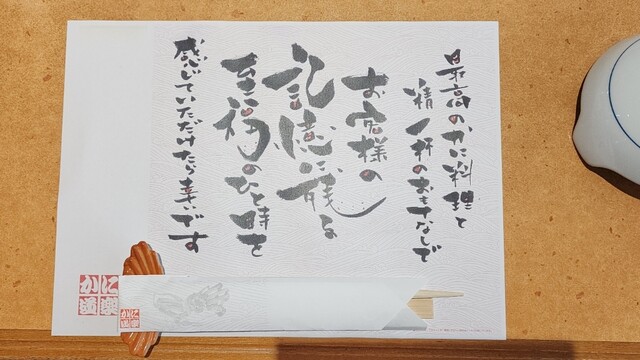 最高のかに料理と
精一杯のおもてなしで
お客様の
記憶に残る
至福のひと時を
感じていただけたら幸いです
かに道楽
かに道楽